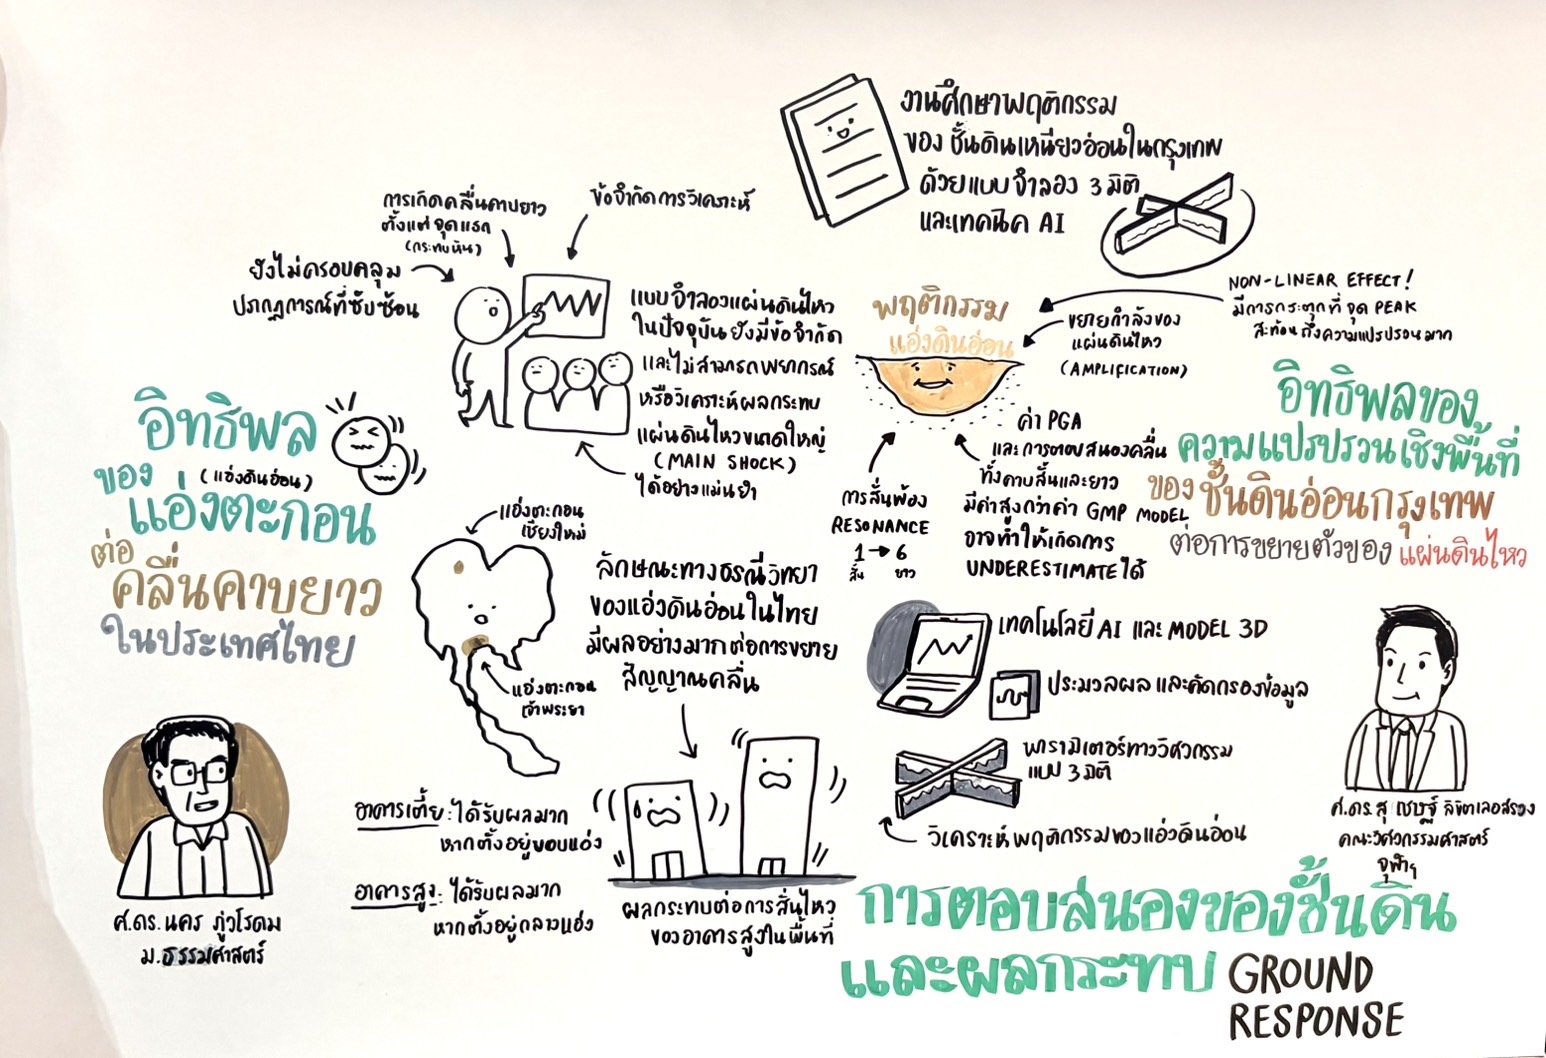 อิทธิพล
ของ (แอ่งดินอ่อน)
แอ่งตะกอน
ต่อ
คลื่นคาบยาว
ในประเทศไทย
ศ.ดร.นคร ภู่วโรดม
ม.ธรรมศาสตร์
การเกิดคลื่นคาบยาว
ตั้งแต่จุดแรก
(กระทบหิน)
ข้อจำกัดการวิเคราะห์
ยังไม่ครอบคลุม
ปรากฏการณ์ที่ซับซ้อน
แบบจำลองแผ่นดินไหว
ในปัจจุบันยังมีข้อจำกัด
และไม่สามารถพยากรณ์
หรือวิเคราะห์ผลกระทบ
แผ่นดินไหวขนาดใหญ่
(MAIN SHOCK)
ได้อย่างแม่นยำ
แอ่งตะกอน
เชียงใหม่
แอ่งตะกอน
เจ้าพระยา
ลักษณะทางธรณีวิทยา
ของแอ่งดินอ่อนในไทย
มีผลอย่างมากต่อการขยาย
สัญญาณคลื่น
อาคารเตี้ย : ได้รับผลมาก
หากตั้งอยู่ขอบแอ่ง
อาคารสูง : ได้รับผลมาก
หากตั้งอยู่กลางแอ่ง
ผลกระทบต่อการสั่นไหว
ของอาคารสูงในพื้นที่
งานศึกษาพฤติกรรม
ของ ชั้นดินเหนียวอ่อนในกรุงเทพ
ด้วยแบบจำลอง 3 มิติ
และเทคนิค AI
พฤติกรรม
แอ่งดินอ่อน
NON-LINEAR EFFECT!
มีการกระตุกที่จุด PEAK
สะท้อนถึงความแปรปรวนมาก
ขยายกำลังของ
แผ่นดินไหว
(AMPLIFICATION)
ค่า PGA
และการตอบสนองคลื่น
ทั้งคาบสั้นและยาว
มีค่าสูงกว่าค่า GMP MODEL
อาจทำให้เกิดการ
UNDERESTIMATE ได้
การสั่นพ้อง
RESONANCE
1 → 6
สั้น ยาว
อิทธิพลของ
ความแปรปรวนเชิงพื้นที่
ของ ชั้นดินอ่อนกรุงเทพ
ต่อการขยายตัวของ แผ่นดินไหว
เทคโนโลยี AI และ MODEL 3D
ประมวลผล และคัดกรองข้อมูล
พารามิเตอร์ทางวิศวกรรม
แบบ 3 มิติ
วิเคราะห์พฤติกรรมของแอ่งดินอ่อน
ศ.ดร.สุเชษฐ์ ลิขิตเลอสรวง
คณะวิศวกรรมศาสตร์
จุฬาฯ
การตอบสนองของชั้นดิน
และผลกระทบ GROUND
RESPONSE